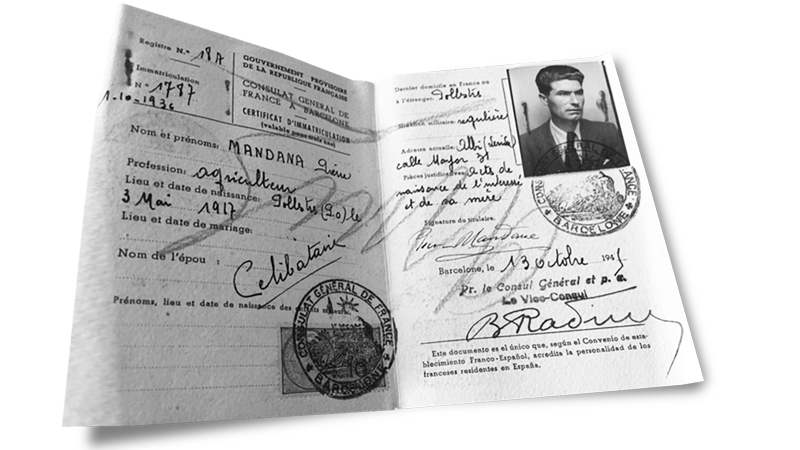 Registre N.° 187
Immatriculation
N° 1787
1-10-1936
GOUVERNEMENT PROVISOIRE
DE LA RÉPUBLIQUE FRANÇAISE
CONSULAT GÉNÉRAL DE
FRANCE A BARCELONE
CERTIFICAT D'IMMATRICULATION
(valable pour trois ans)
Nom et prénoms: MANDANA
Profession: agriculteur
Lieu et date de naissance: le
3 Mai 1917
Lieu et date de mariage:
Nom de l'épou :
Celibataire
Prénoms, lieu et date de naissance des
CONSULAT GÉNÉRAL DE FRANCE
BARCELONE
Dernier domicile en France ou
à l'étranger:
Situation militaire: regulière
Adresse actuelle: Albi
calle Mayor 31
Pièces justificatives: Acte de
naissance de l'interessé
et de sa mere
Signature du titulaire.
Mandana
Barcelone, le 13 Octobre 194
Pr. le Consul Général et p. a.
Le Vice-Consul
FRANCE
BARCELONE
Este documento es el único que, según el Convenio de esta-
blecimiento Franco-Español, acredita la personalidad de los
franceses residentes en España.